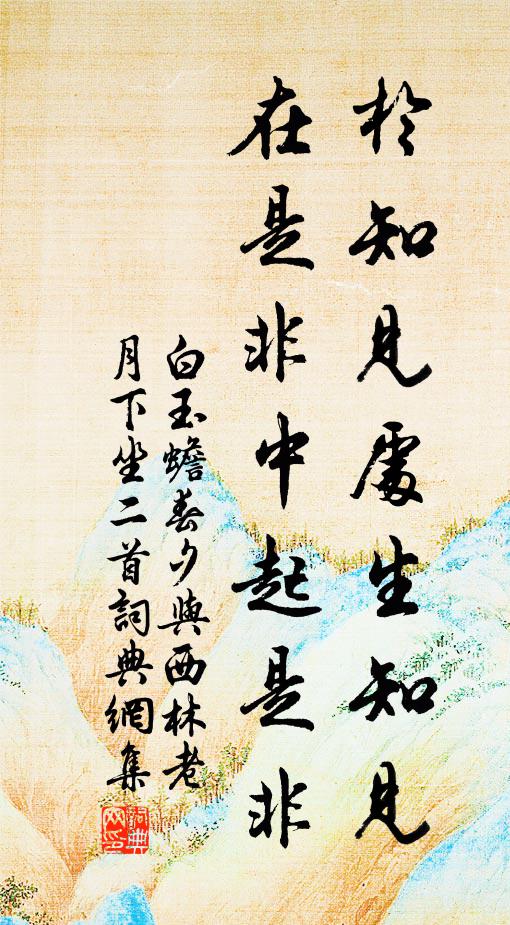 於知見處生知見
在是非中起是非
白玉蟾春夕與西林老
月下坐二首詞典網集
詞典
网印